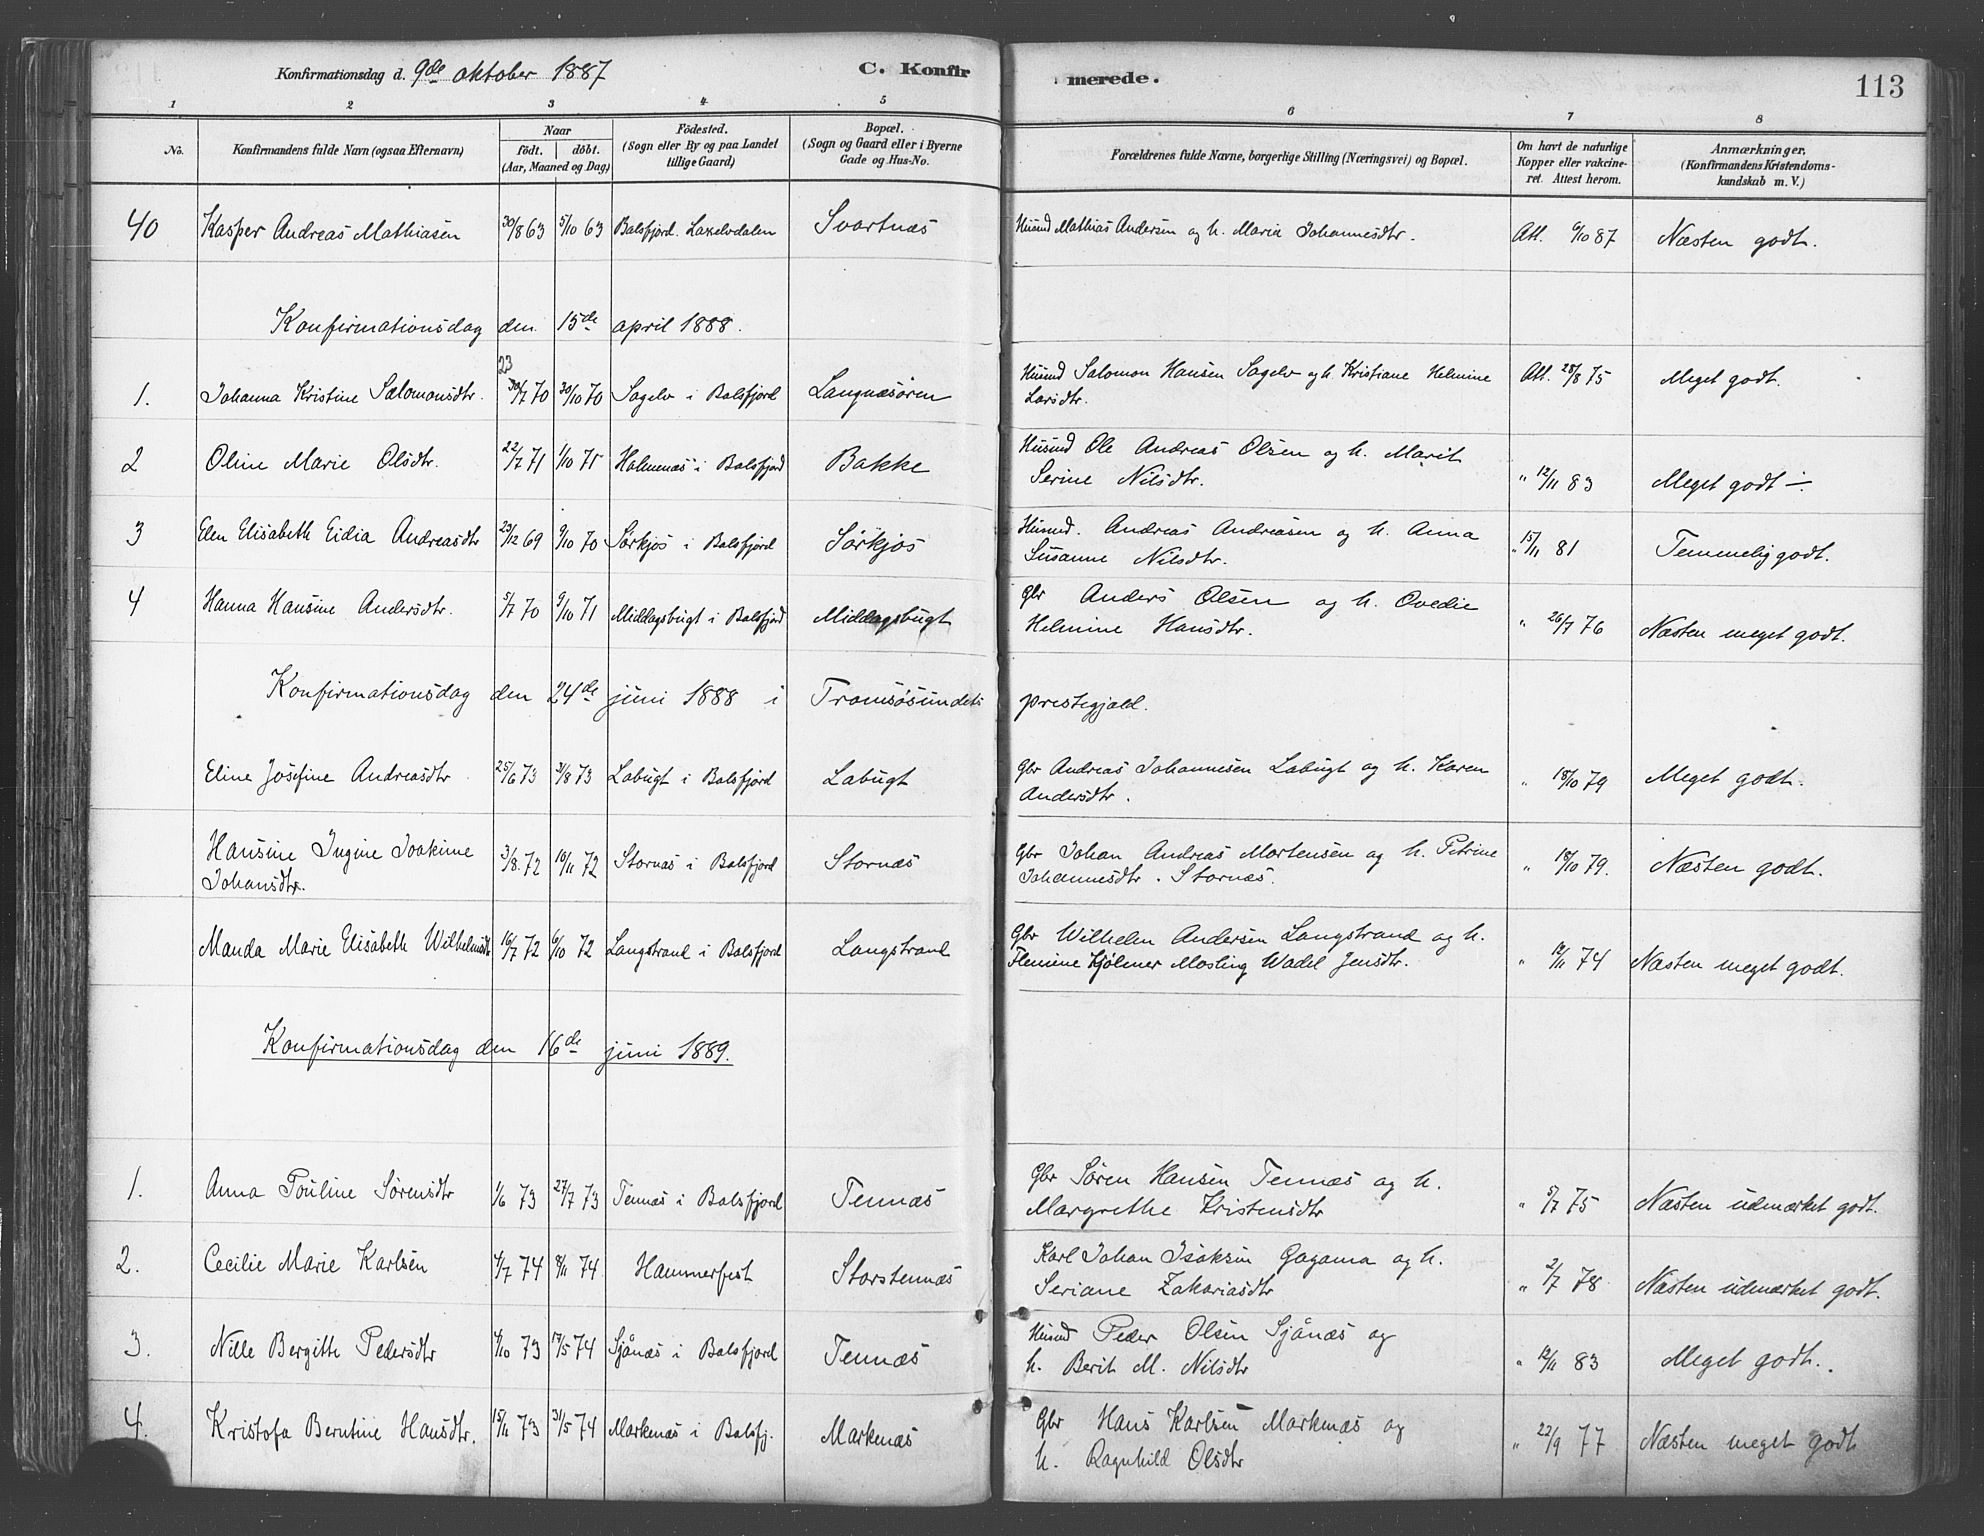 Konfirmationsdag d. 9de oktober 1887
C. Konfirmerede.
113
1 2 3 4 5 6 7 8
No. Konfirmandens fulde Navn (ogsaa Efternavn) Naar födt. döbt. (Aar, Maaned og Dag) Födested. (Sogn eller By og paa Landet tillige Gaard) Bopæl. (Sogn og Gaard eller i Byerne Gade og Hus-No. Forældrenes fulde Navne, borgerlige Stilling (Næringsvei) og Bopæl. Om havt de naturlige Kopper eller vakcineret. Attest herom. Anmærkninger, (Konfirmandens Kristendomskundskab m. V.)
40 Kasper Andreas Mathiasen 30/8 63 5/10 63 Balsfjord. Laxelvdalen Svartnæs Husmd Mathias Andersen og h. Maria Johannesdtr. Att. 6/10 87 Næsten godt.
Konfirmationsdag den 15de april 1888.
1. Johanna Kristine Salomonsdtr. 23 30/7 70 30/10 70 Sagelv i Balsfjord Langnæsøren Husmd Salomon Hansen Sagelv og h. Kristiane Helmine Att. 28/8 75 Meget godt.
Larsdtr.
2 Oline Marie Olsdtr. 22/7 71 1/10 71 Holmenæs i Balsfjord Bakke Husmd Ole Andreas Olsen og h. Marit
Serine Nilsdtr. " 12/11 83 Meget godt ÷.
3 Elen Elisabeth Eidia Andreasdtr 23/12 69 9/10 70 Sørkjos i Balsfjord Sørkjos Husmd. Andreas Andreasen og h. Anna
Susanne Nilsdtr. " 15/11 81 Temmelig godt.
4 Hanna Hansine Andersdtr. 5/7 70 9/10 71 Middagsbugt i Balsfjord Middagsbugt Gbr Anders Olsen og h. Ovedie
Helmine Hansdtr. " 26/7 76 Næsten meget godt.
Konfirmationsdag den 24de juni 1888 i Tromsøsundets præstegjæld.
Eline Josefine Andreasdtr 25/6 73 3/8 73 Labugt i Balsfjord Labugt Gbr Andreas Johannesen Labugt og h. Karen " 18/10 79 Meget godt.
Andersdtr.
Hansine Ingine Joakime 3/8. 72 16/11 72 Stornæs i Balsfjord Stornæs Gbr Johan Andreas Mortensen og h. Petrine " 18/10 79. Næsten godt.
Johansdtr. Johannesdtr. Stornæs.
Manda Marie Elisabeth Wilhelmsdtr 16/7 72 6/10 72 Langstrand i Balsfjord Langstrand Gbr Wilhelm Andersen Langstrand og h.
Flemine Hjølmer Mosling Wadel Jensdtr. " 12/11 74 Næsten meget godt.
Konfirmationsdag den 16de juni 1889.
1. Anna Pouline Sørensdtr 1/6 73 27/7 73 Tennæs i Balsfjord Tennæs Gbr Søren Hansen Tennæs og h.
Margrethe Kristensdtr " 5/7 75 Næsten udmærket godt.
2. Cecilie Marie Karlsen 4/7 74 8/11 74 Hammerfest Storstennæs Karl Johan Isaksen Gagama og h.
Seriane Zakariasdtr " 2/7 78 Næsten udmærket godt.
3. Nille Bergitte Pedersdtr 4/10 73 17/5 74 Sjånæs i Balsfjord Tennæs Husmd Peder Olsen Sjånæs og
h. Berit M. Nilsdtr " 12/11 83 Meget godt.
4. Kristofa Berntine Hansdtr. 15/11 73 31/5 74 Markenæs i Balsfj. Markenæs Gbr Hans Karlsen Markenæs og
h. Ragnhild Olsdtr " 22/9 77 Næsten meget godt